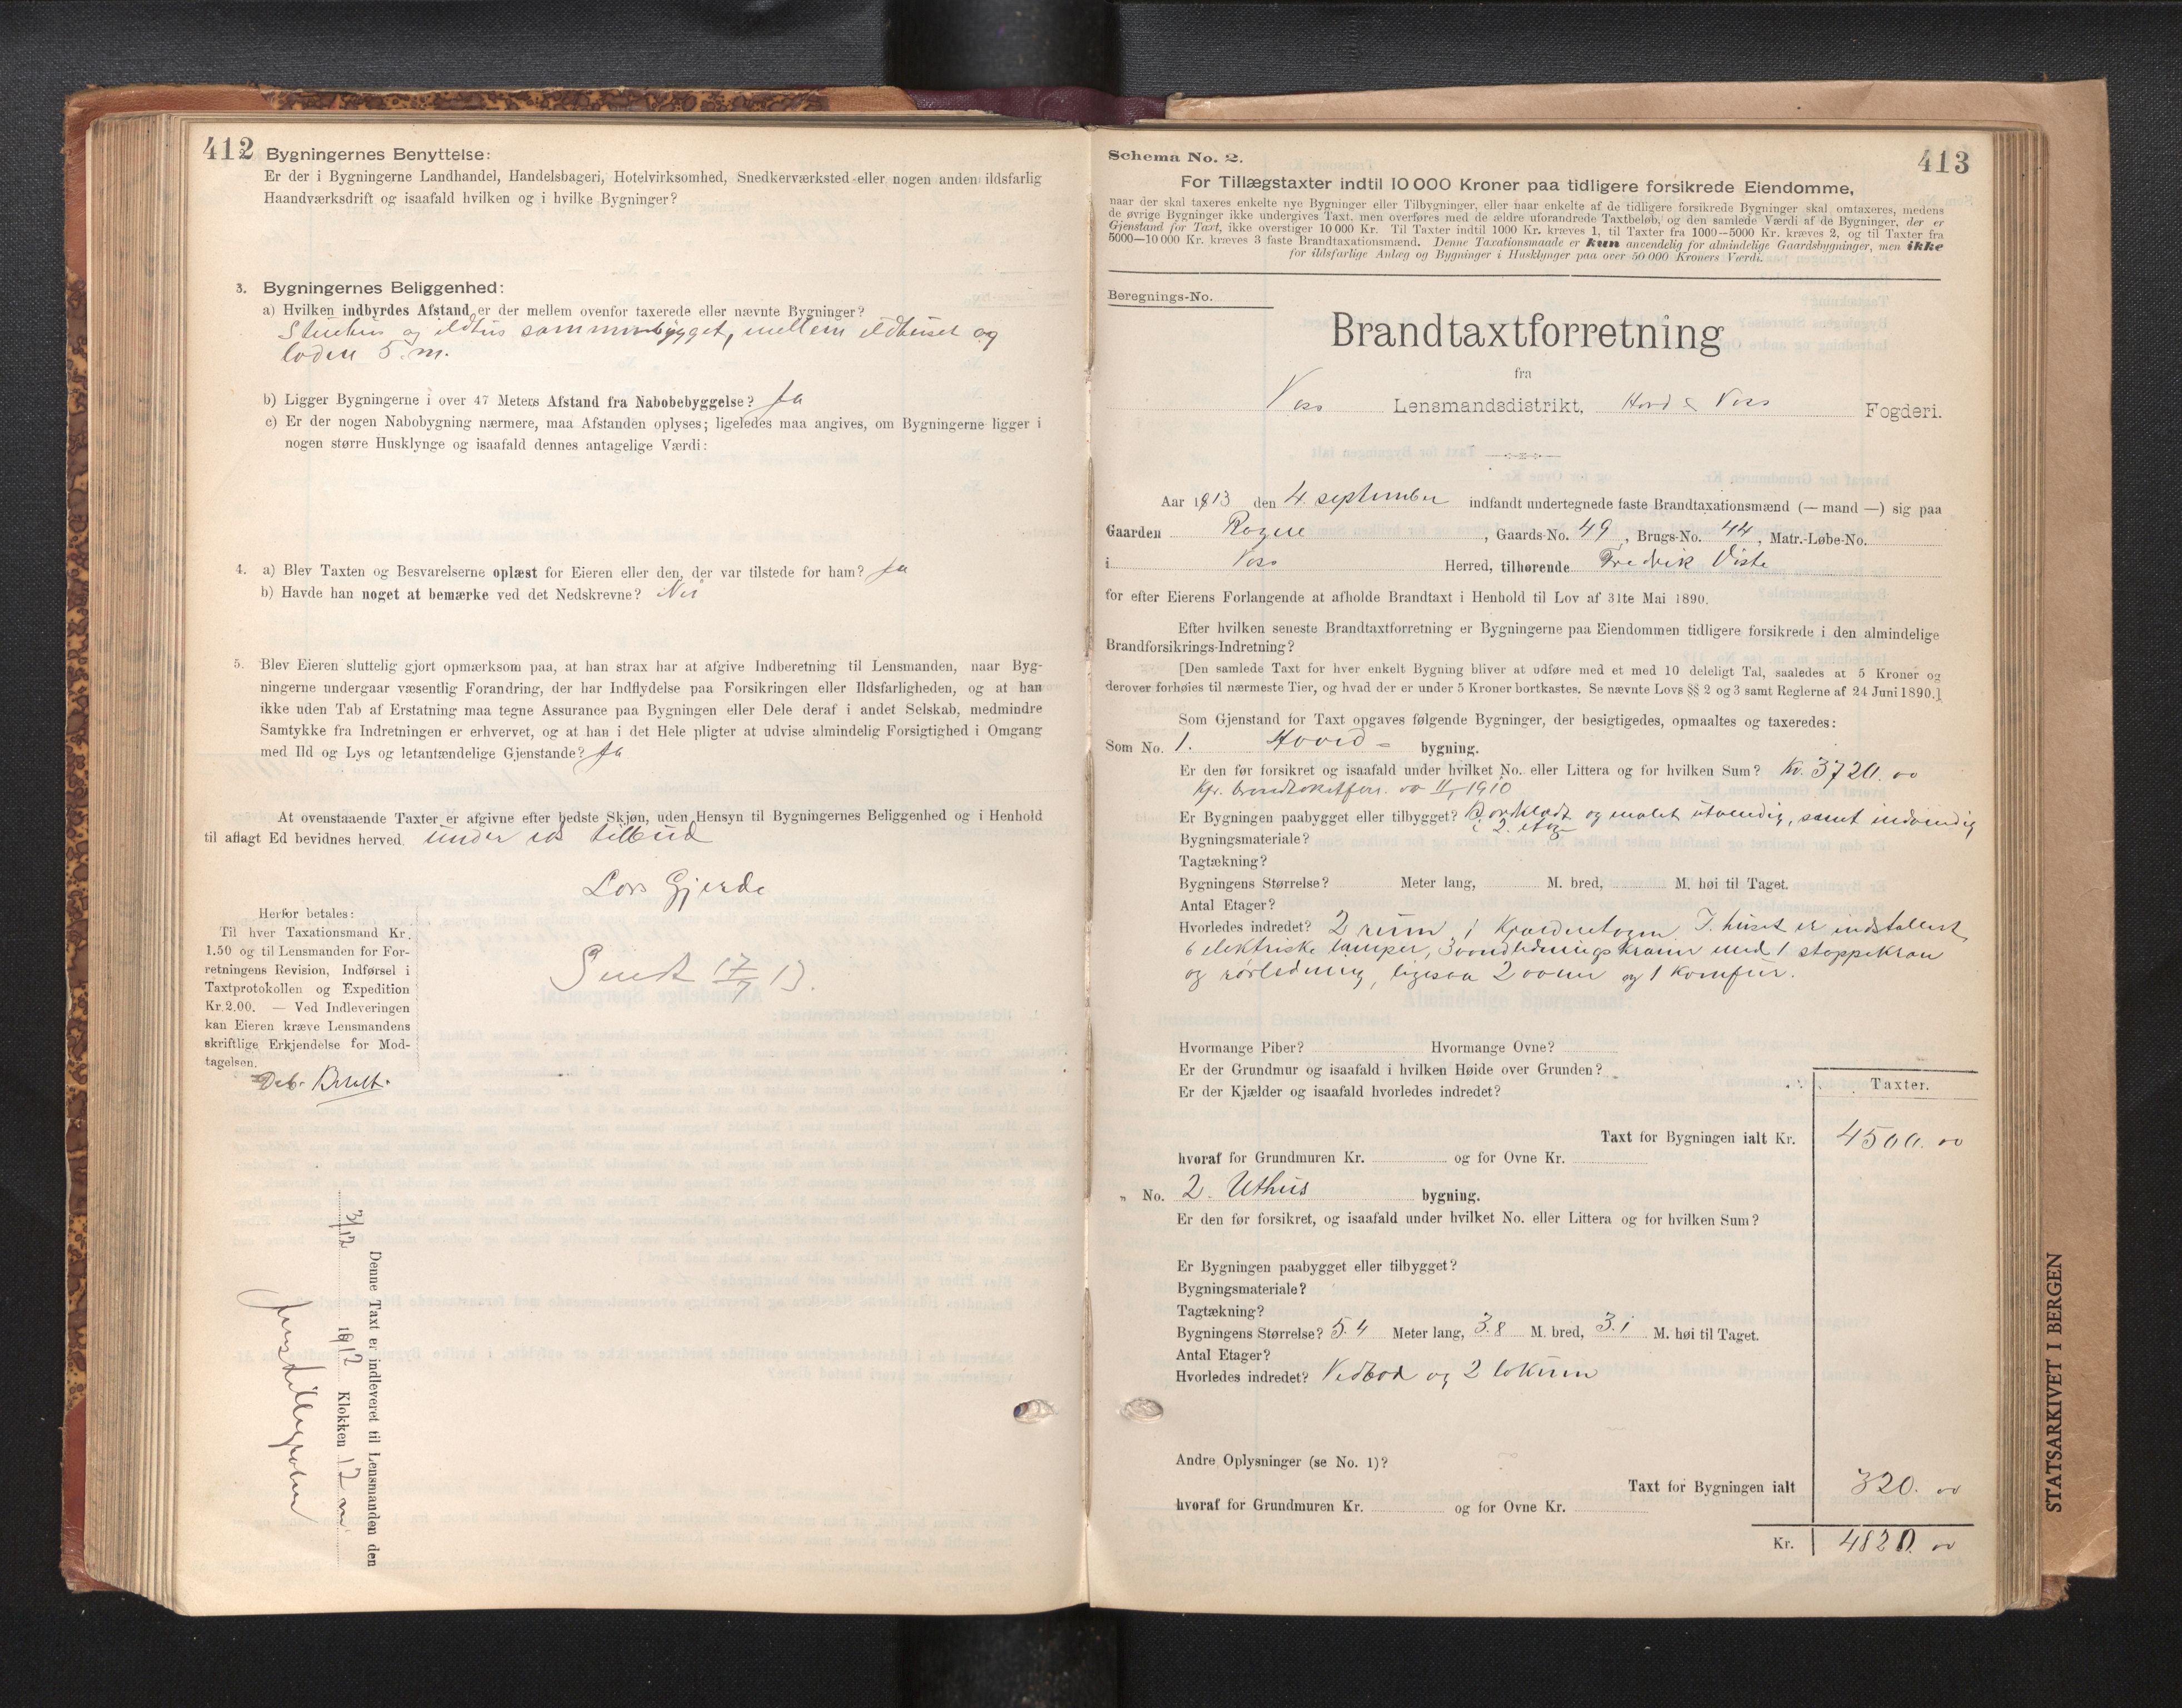 412
Bygningernes Benyttelse:
Er der i Bygningerne Landhandel, Handelsbageri, Hotelvirksomhed, Snedkerværksted eller nogen anden ildsfarlig
Haandværksdrift og isaafald hvilken og i hvilke Bygninger?
3. Bygningernes Beliggenhed:
a) Hvilken indbyrdes Afstand er der mellem ovenfor taxerede eller nævnte Bygninger?
Stuehus og ildhus sammenbygget, mellem ildhuset og
loden 5. m.
b) Ligger Bygningerne i over 47 Meters Afstand fra Nabobebyggelse? Ja
c) Er der nogen Nabobygning nærmere, maa Afstanden oplyses; ligeledes maa angives, om Bygningerne ligger i
nogen større Husklynge og isaafald dennes antagelige Værdi:
4. a) Blev Taxten og Besvarelserne oplæst for Eieren eller den, der var tilstede for ham? Ja
b) Havde han noget at bemærke ved det Nedskrevne? Nei
5. Blev Eieren sluttelig gjort opmærksom paa, at han strax har at afgive Indberetning til Lensmanden, naar Byg-
ningerne undergaar væsentlig Forandring, der har Indflydelse paa Forsikringen eller Ildsfarligheden, og at han
ikke uden Tab af Erstatning maa tegne Assurance paa Bygningen eller Dele deraf i andet Selskab, medmindre
Samtykke fra Indretningen er erhvervet, og at han i det Hele pligter at udvise almindelig Forsigtighed i Omgang
med Ild og Lys og letantændelige Gjenstande? Ja
At ovenstaaende Taxter er afgivne efter bedste Skjøn, uden Hensyn til Bygningernes Beliggenhed og i Henhold
til aflagt Ed bevidnes herved under eds tilbud
Lars Gjerde
Herfor betales:
Til hver Taxationsmand Kr.
1.50 og til Lensmanden for For-
retningens Revision, Indførsel i
Taxtprotokollen og Expedition
Kr. 2.00. — Ved Indleveringen
kan Eieren kræve Lensmandens
skriftlige Erkjendelse for Mod-
tagelsen.
Deb. Betalt.
Sendt 17/7 13.
Denne Taxt er indleveret til Lensmanden den
3/12 1912 Klokken 12 m
413
Schema No. 2.
For Tillægstaxter indtil 10 000 Kroner paa tidligere forsikrede Eiendomme,
naar der skal taxeres enkelte nye Bygninger eller Tilbygninger, eller naar enkelte af de tidligere forsikrede Bygninger skal omtaxeres, medens
de øvrige Bygninger ikke undergives Taxt, men overføres med de ældre uforandrede Taxtbeløb, og den samlede Værdi af de Bygninger, der er
Gjenstand for Taxt, ikke overstiger 10 000 Kr. Til Taxter indtil 1000 Kr. kræves 1, til Taxter fra 1000—5000 Kr. kræves 2, og til Taxter fra
5000—10 000 Kr. kræves 3 faste Brandtaxationsmænd. Denne Taxationsmaade er kun anvendelig for almindelige Gaardsbygninger, men ikke
for ildsfarlige Anlæg og Bygninger i Husklynger paa over 50 000 Kroners Værdi.
Beregnings-No.
Brandtaxtforretning
fra
Voss Lensmandsdistrikt, Hard & Voss Fogderi.
Aar 1913 den 4. september indfandt undertegnede faste Brandtaxationsmænd (— mand —) sig paa
Gaarden Rogne, Gaards-No. 49, Brugs-No. 44, Matr.-Løbe-No.
i Voss Herred, tilhørende Fredrik Viste
for efter Eierens Forlangende at afholde Brandtaxt i Henhold til Lov af 31te Mai 1890.
Efter hvilken seneste Brandtaxtforretning er Bygningerne paa Eiendommen tidligere forsikrede i den almindelige
Brandforsikrings-Indretning?
[Den samlede Taxt for hver enkelt Bygning bliver at udføre med et med 10 deleligt Tal, saaledes at 5 Kroner og
derover forhøies til nærmeste Tier, og hvad der er under 5 Kroner bortkastes. Se nævnte Lovs §§ 2 og 3 samt Reglerne af 24 Juni 1890.]
Som Gjenstand for Taxt opgaves følgende Bygninger, der besigtigedes, opmaaltes og taxeredes:
Som No. 1. Hoved- bygning.
Er den før forsikret og isaafald under hvilket No. eller Littera og for hvilken Sum? Kr. 3720.00
1910
Er Bygningen paabygget eller tilbygget? Bordklædt og malet utvendig, samt indvendig
i 2. etage
Bygningsmateriale?
Tagtækning?
Bygningens Størrelse? Meter lang, M. bred, M. høi til Taget.
Antal Etager?
Hvorledes indrettet? 2 rum i Kjælderetagen I. huset er indstallert
6 elektriske lamper, 3 vandledningskraner med 1 stoppekran
og rørledning, ligesaa 2 ovner og 1 komfur.
Hvormange Piber? Hvormange Ovne?
Er der Grundmur og isaafald i hvilken Høide over Grunden?
Er der Kjælder og isaafald hvorledes indredet?
Taxter.
Taxt for Bygningen ialt Kr. 4500.00
hvoraf for Grundmuren Kr. og for Ovne Kr.
" No. 2. Uthus bygning.
Er den før forsikret, og isaafald under hvilket No. eller Littera og for hvilken Sum?
Er Bygningen paabygget eller tilbygget?
Bygningsmateriale?
Tagtækning?
Bygningens Størrelse? 5.4 Meter lang, 3.8 M. bred, 3.1 M. høi til Taget.
Antal Etager?
Hvorledes indredet? Vedbod og 2 lokum
Andre Oplysninger (se No. 1)?
Taxt for Bygningen ialt 320.00
hvoraf for Grundmuren Kr. og for Ovne Kr.
Kr. 4820.00
STATSARKIVET I BERGEN